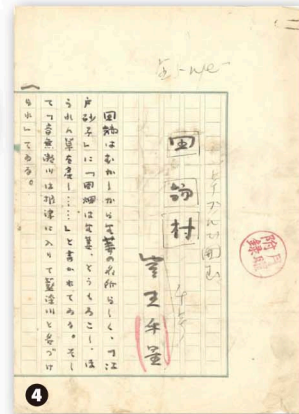 田端村
室生犀星
田端はむかしから生姜の名所らしく、「江
戸砂子」に「田畑は生姜、とうもろこし、ほ
うれん草を産し……」と書かれてゐる。そし
て「音無瀬川は根津に入りて藍染川と名づけ
られ」てゐる。
4